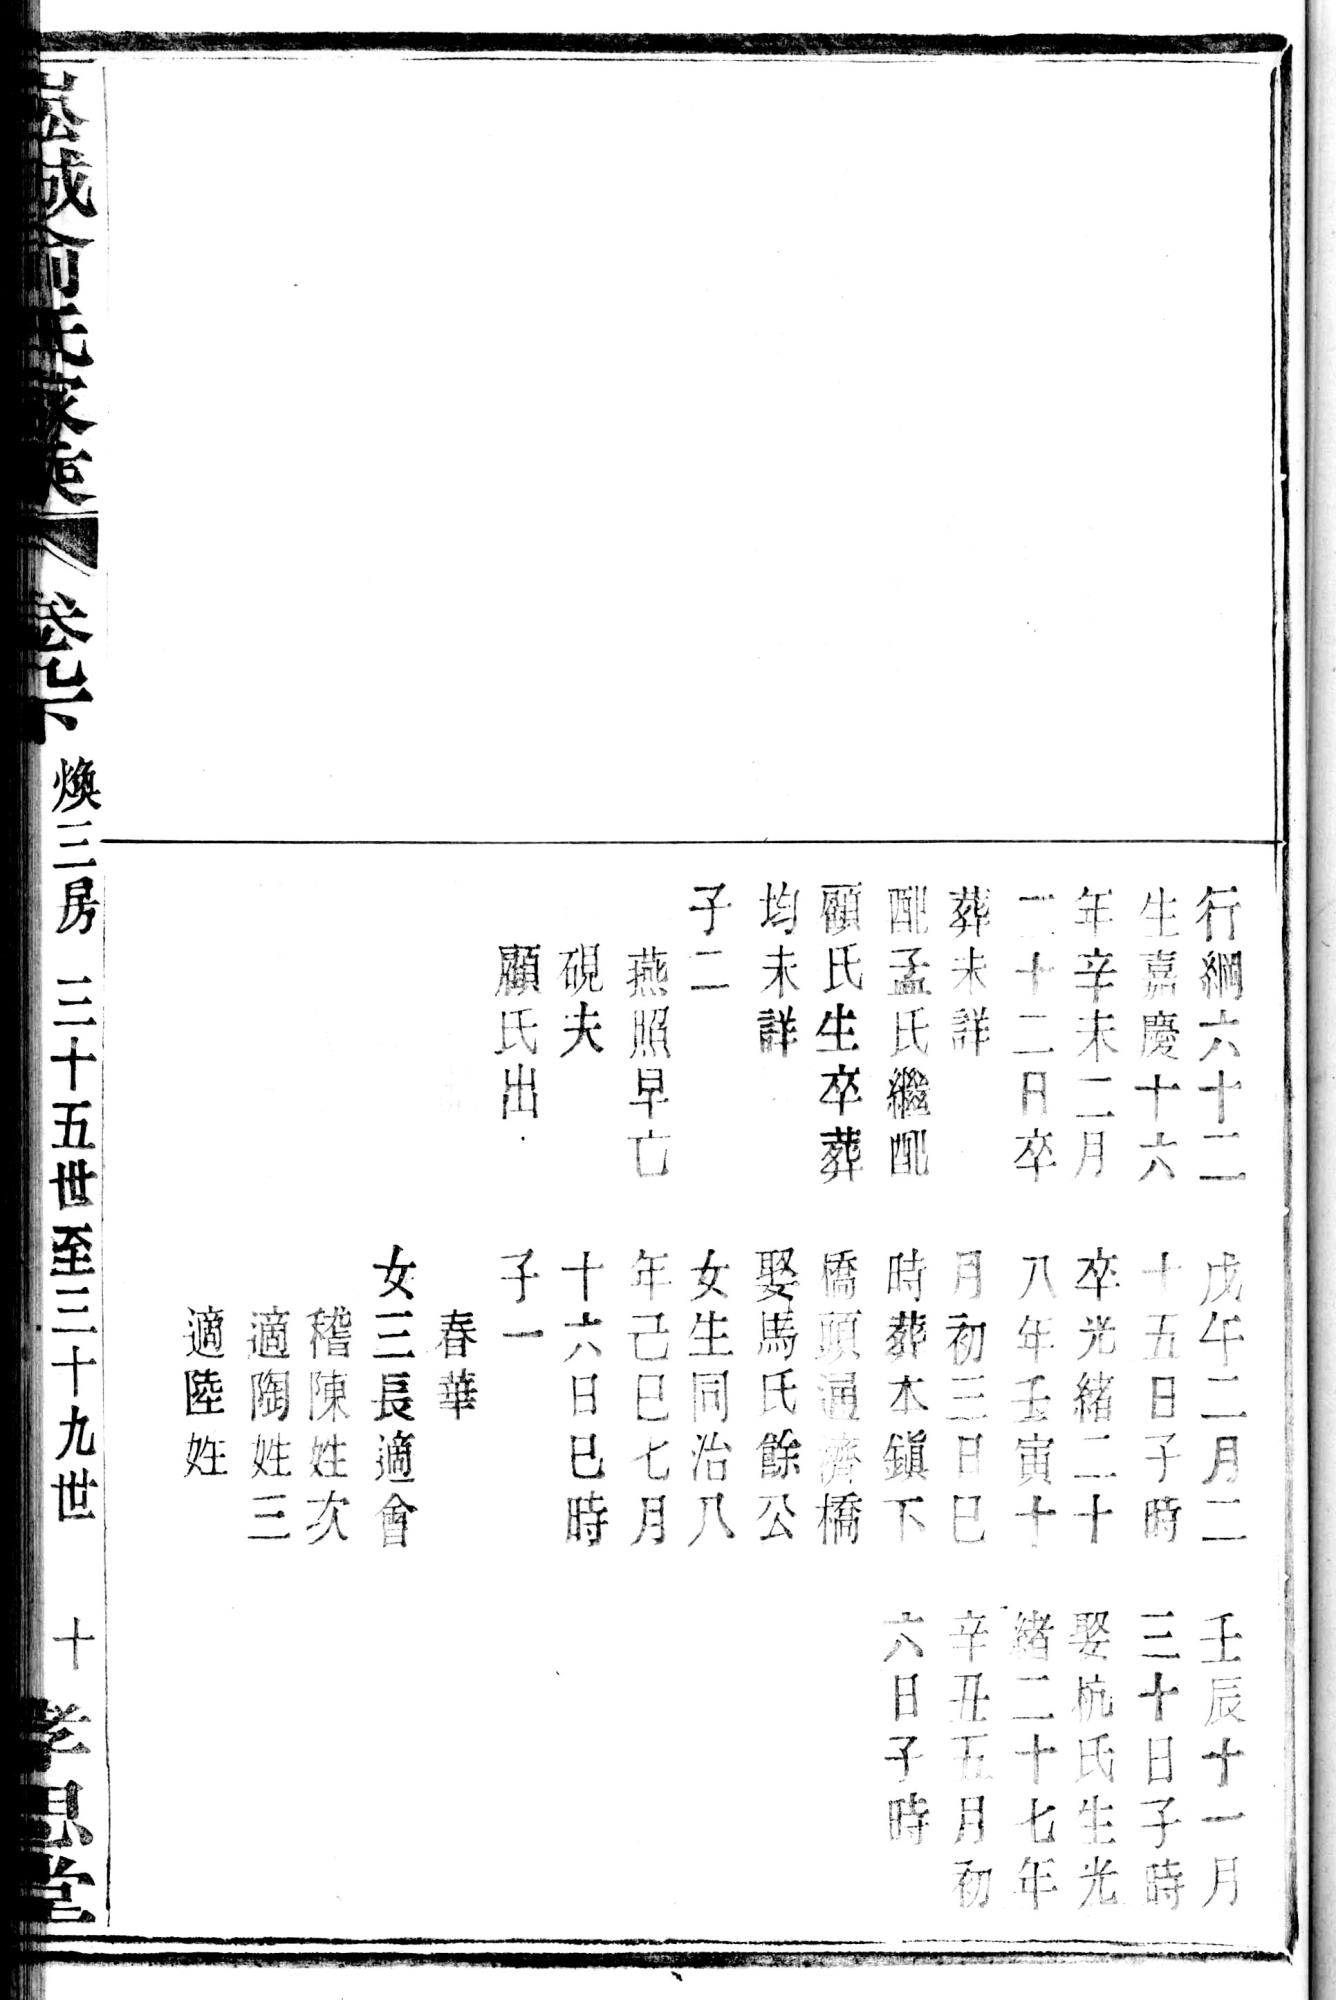 行綱六十二
生嘉慶十六
年辛未二月
二十二日卒
葬未詳
配孟氏繼配
顧氏生卒葬
均未詳
子二
燕照早亡
硯夫
顧氏出
戊午二月二
十五日子時
卒光緒二十
八年壬寅十
月初三日巳
時葬本鎮下
橋頭通濟橋
娶馬氏餘公
女生同治八
年己巳七月
十六日巳時
子一
春華
女三長適會
稽陳姓次
適陶姓三
適陸姓
壬辰十一月
三十日子時
娶杭氏生光
緒二十七年
辛丑五月初
六日子時
城俞氏家乘 卷下 煥三房 三十五世至三十九世 十 孝思堂